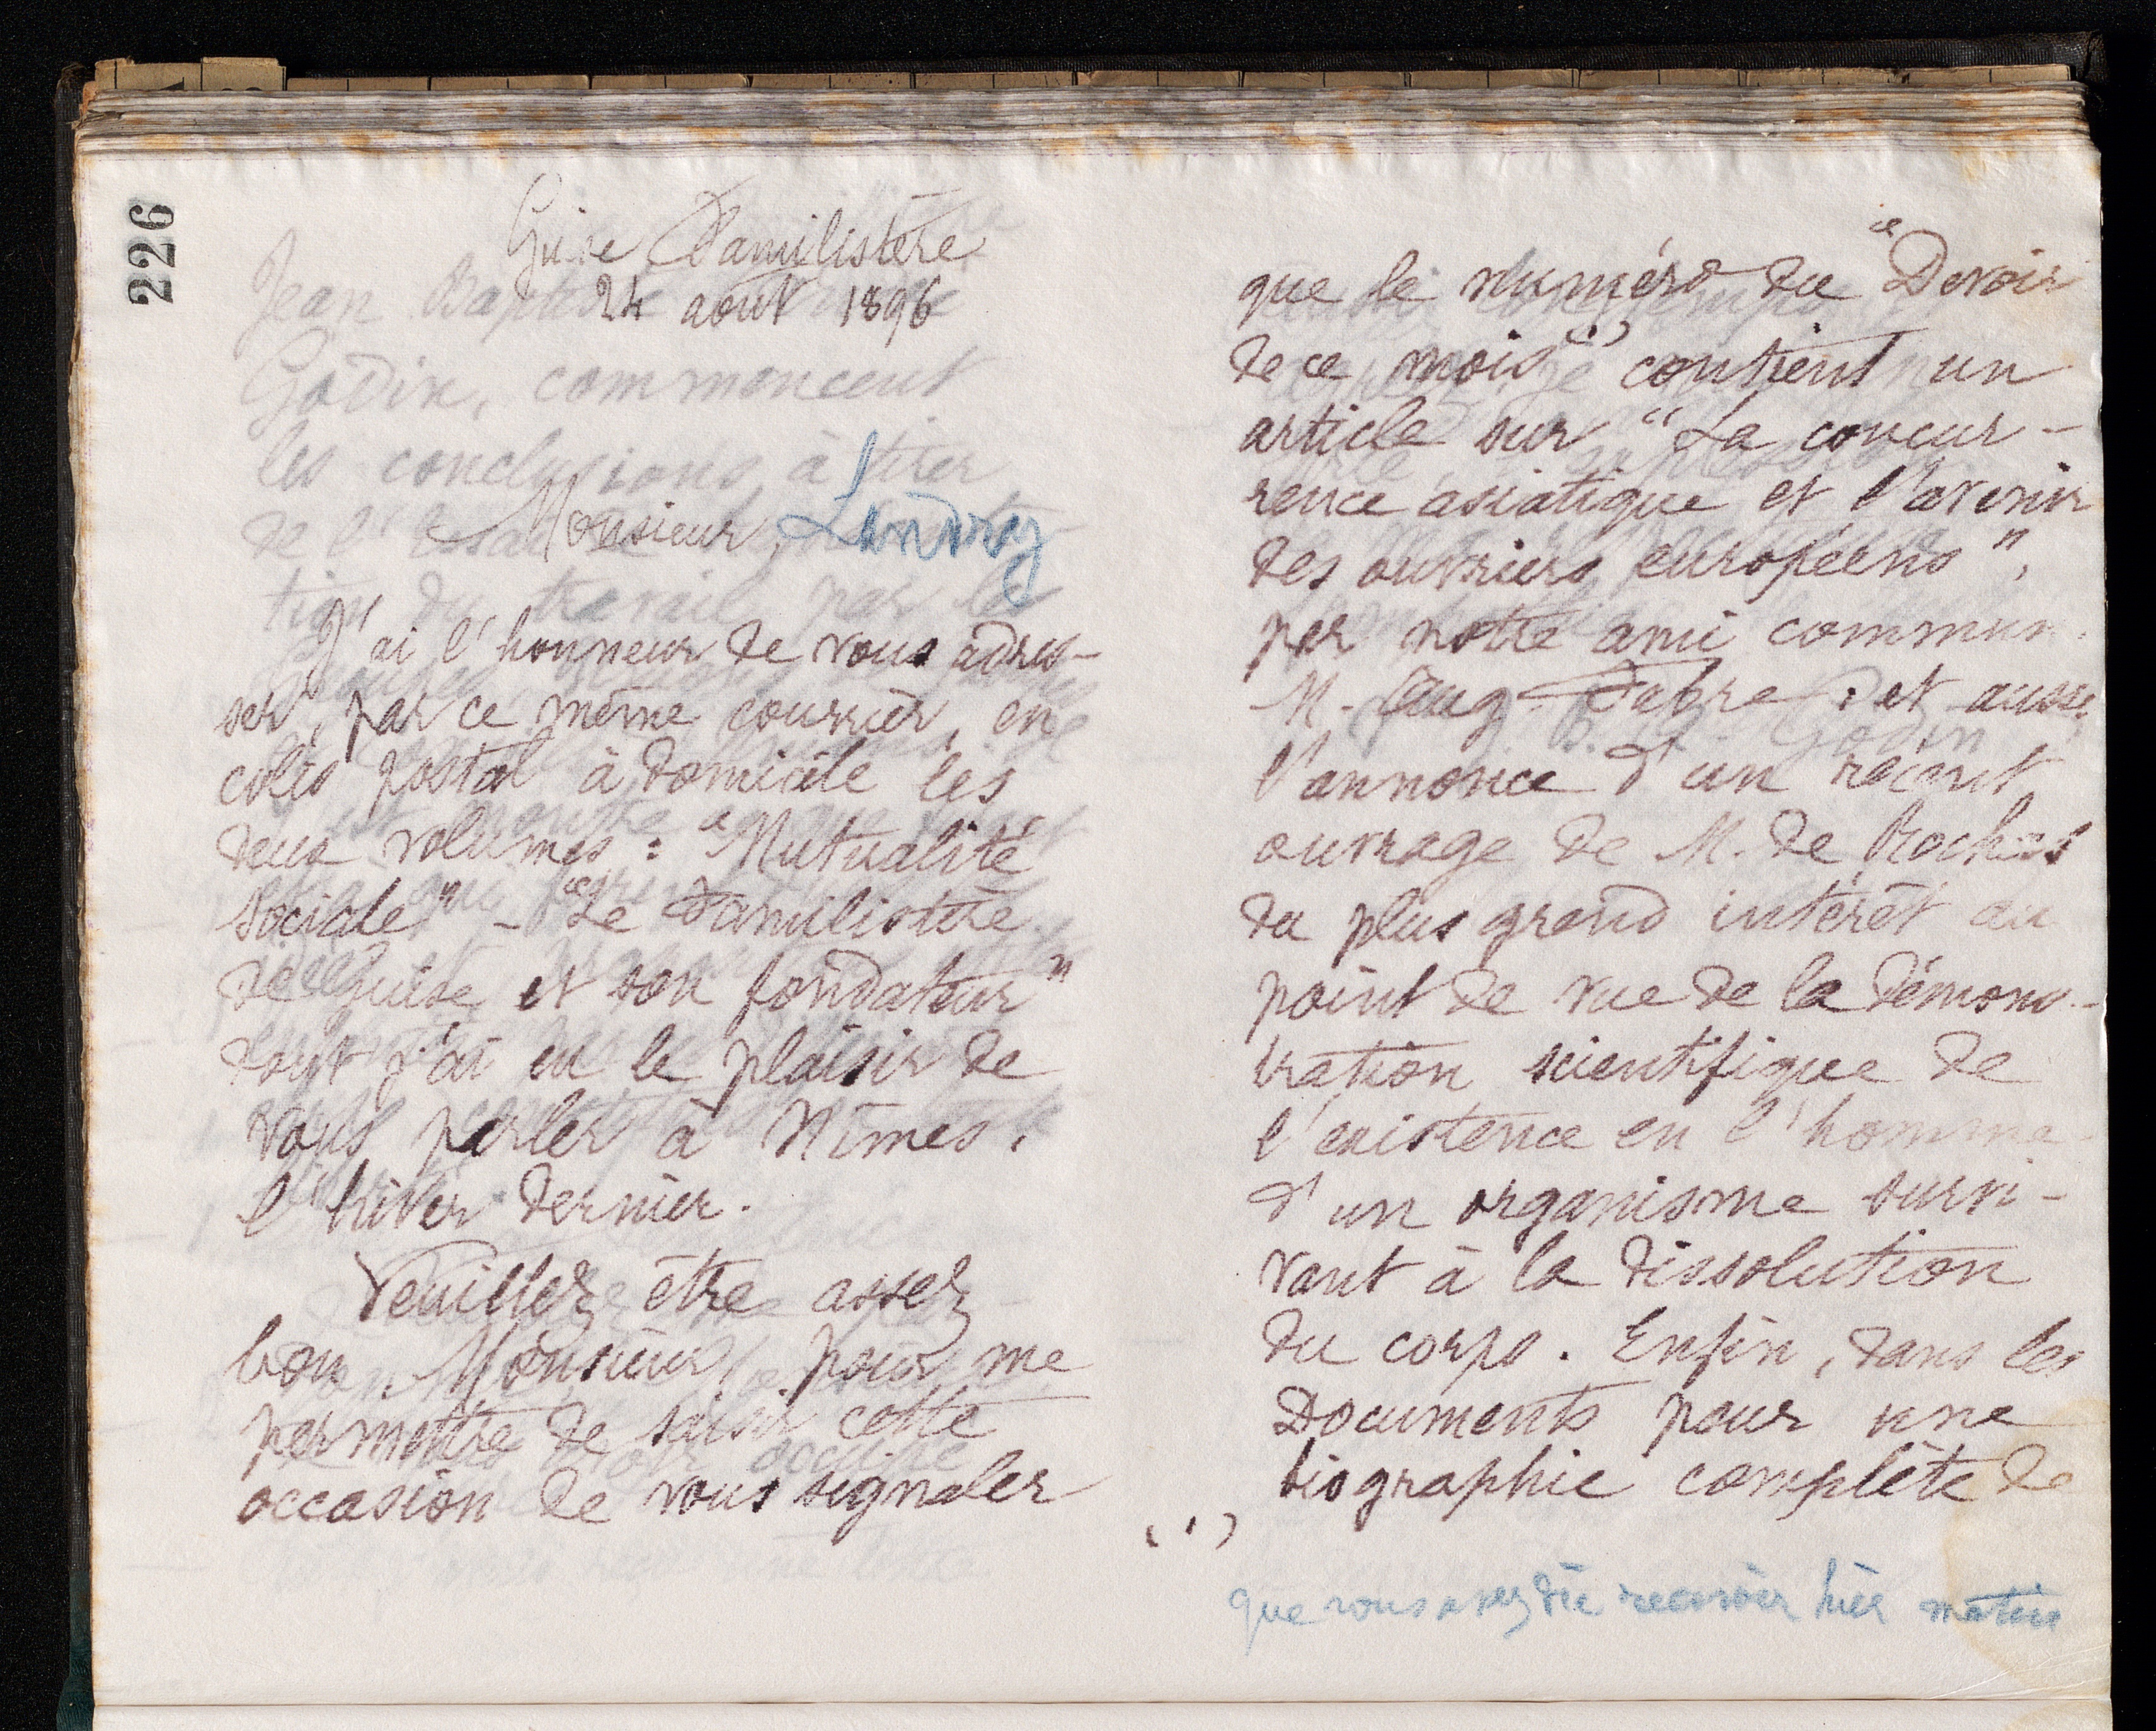 226
Guise Familistère
24 août 1896
Monsieur, Landroz
J'ai l'honneur de vous adres-
ser, par ce même courrier, en
colis postal à domicile les
deux volumes : "Mutualité
Sociale" – "Le Familistère
de Guise et son fondateur"
dont j'ai eu le plaisir de
vous parler à Nîmes,
l'hiver dernier.
Veuillez être assez
bon, Monsieur, pour me
permettre de saisir cette
occasion de vous signaler
que le numéro du "Devoir
de ce mois (1) contient un
article sur "La concur-
rence asiatique et l'avenir
des ouvriers européens",
par notre ami commun
M. Aug. Fabre ; et aussi
l'annonce d'un récent
ouvrage de M. de Rochas
du plus grand intérêt au
point de vue de la démons-
tration scientifique de
l'existence en l'homme
d'un organisme survi-
vant à la dissolution
du corps. Enfin, dans les
Documents pour une
biographie complète de
(1)
que vous avez dû recevoir hier matin
Jean Baptiste
Godin, commencent
les conclusions à tirer
de l'
tion du travail par la